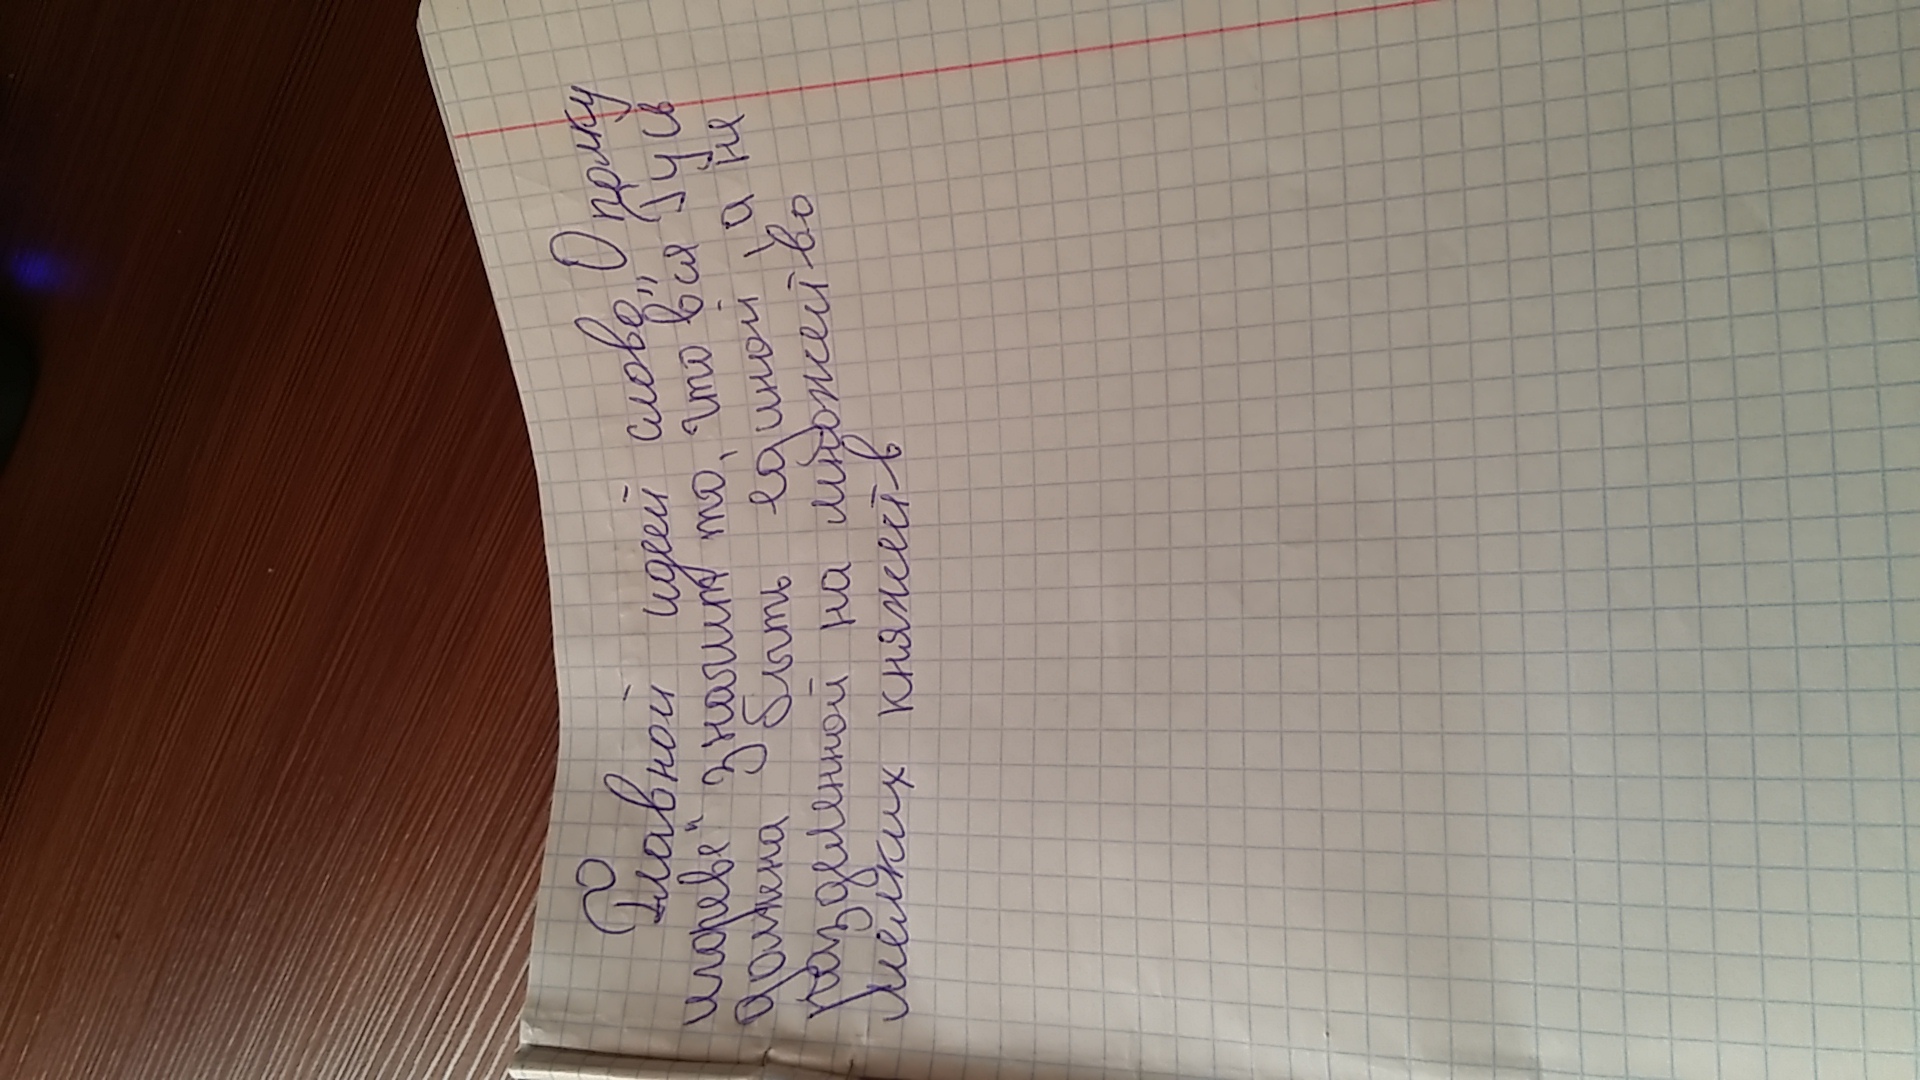 Главной идеей слове „О полку
игореве" значит то, что вся Русь
должна быть единой, а не
разделенной на множество
мелких княжеств